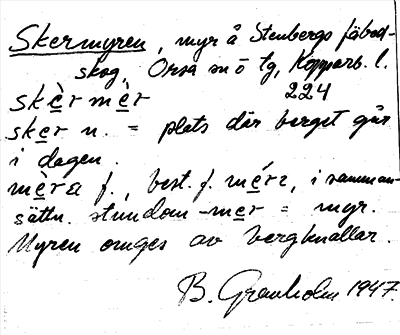 Skermyren, myr å Stenbergs fäbod-
skog, Orsa sn ö tg, Kopparb. l.
224
skèr mèr
sker n. = plats där berget går
i dagen.
mèra f., best. f. mérɩ, i samman-
sättn. stundom -mer = myr.
Myren omges av bergknallar.
B. Granholm 1947.